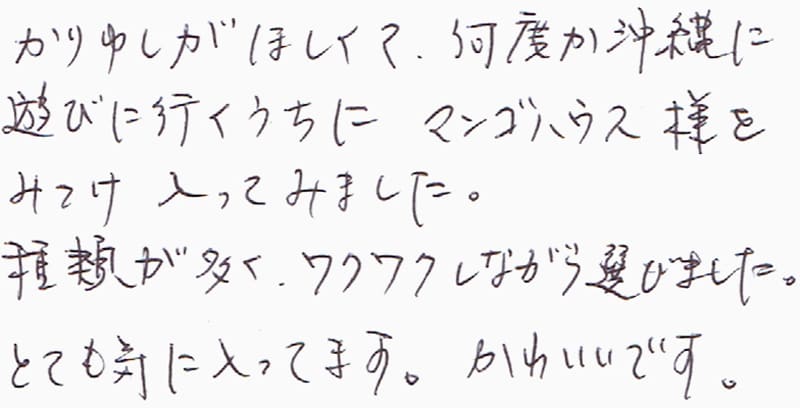 かりゆしがほしくて、何度か沖縄に
遊びに行くうちに マンゴハウス様を
みつけ 入ってみました。
種類が多く、ワクワクしながら選びました。
とても気に入ってます。 かわいいです。